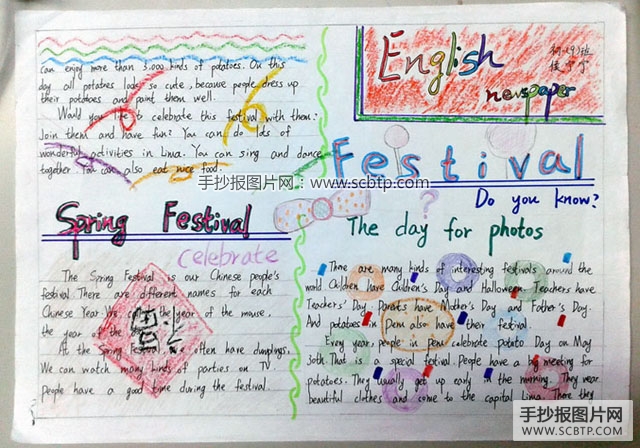 English
newspaper
Festival
Do you know?
The day for photos
There are many kinds of interesting festivals around the
world. Children have Children's Day and Halloween. Teachers have
Teachers' Day. Parents have Mother's Day and Father's Day.
And potatoes in Peru also have their festival.
Every year, people in peru celebrate potato Day on May
30th. That is a special festival. People have a big meeting for
potatoes. They usually get up early in the morning. They wear
beautiful clothes and come to the capital Lima. There they
can enjoy more than 3.000 kinds of potatoes. On this
day all potatoes look so cute, because people dress up
their potatoes and paint them well.
Would you like to celebrate this festival with them?
Join them and have fun? You can do lots of
wonderful activities in Lima. You can sing and dance
together. You can also eat nice food.
手抄报图片网：www.scbtp.com
Spring Festival
celebrate
The Spring Festival is our Chinese people's
festival. There are different names for each
Chinese Year. the year of the mouse,
the year of the
At the Spring often have dumplings.
We can watch many kinds of parties on TV
people have a good time during the festival.
手抄报图片网
SCBTP.COM